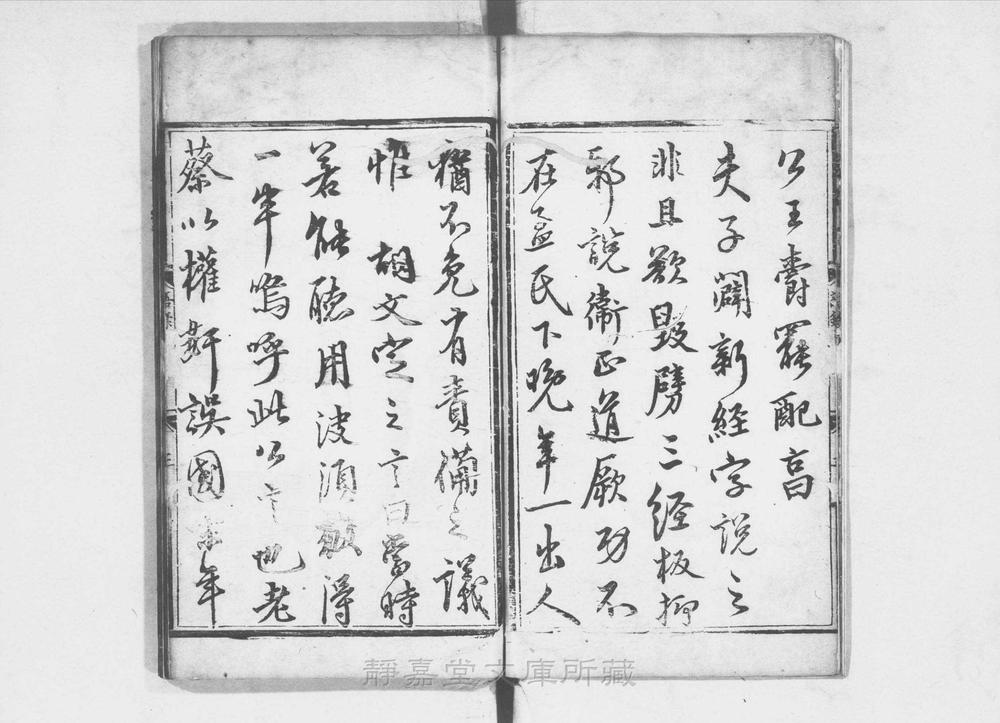 公王爵罷配享
夫子闢新經字說之
非且欲毀劈三經板抑
邪說衛正道厥功不
在孟氏下晚年一出人
猶不免有責備之議
惟 胡文定之言曰當時
若能聽用波須救得
一半嗚呼此公言也老
蔡以權奸誤國當年
靜嘉堂文庫所藏